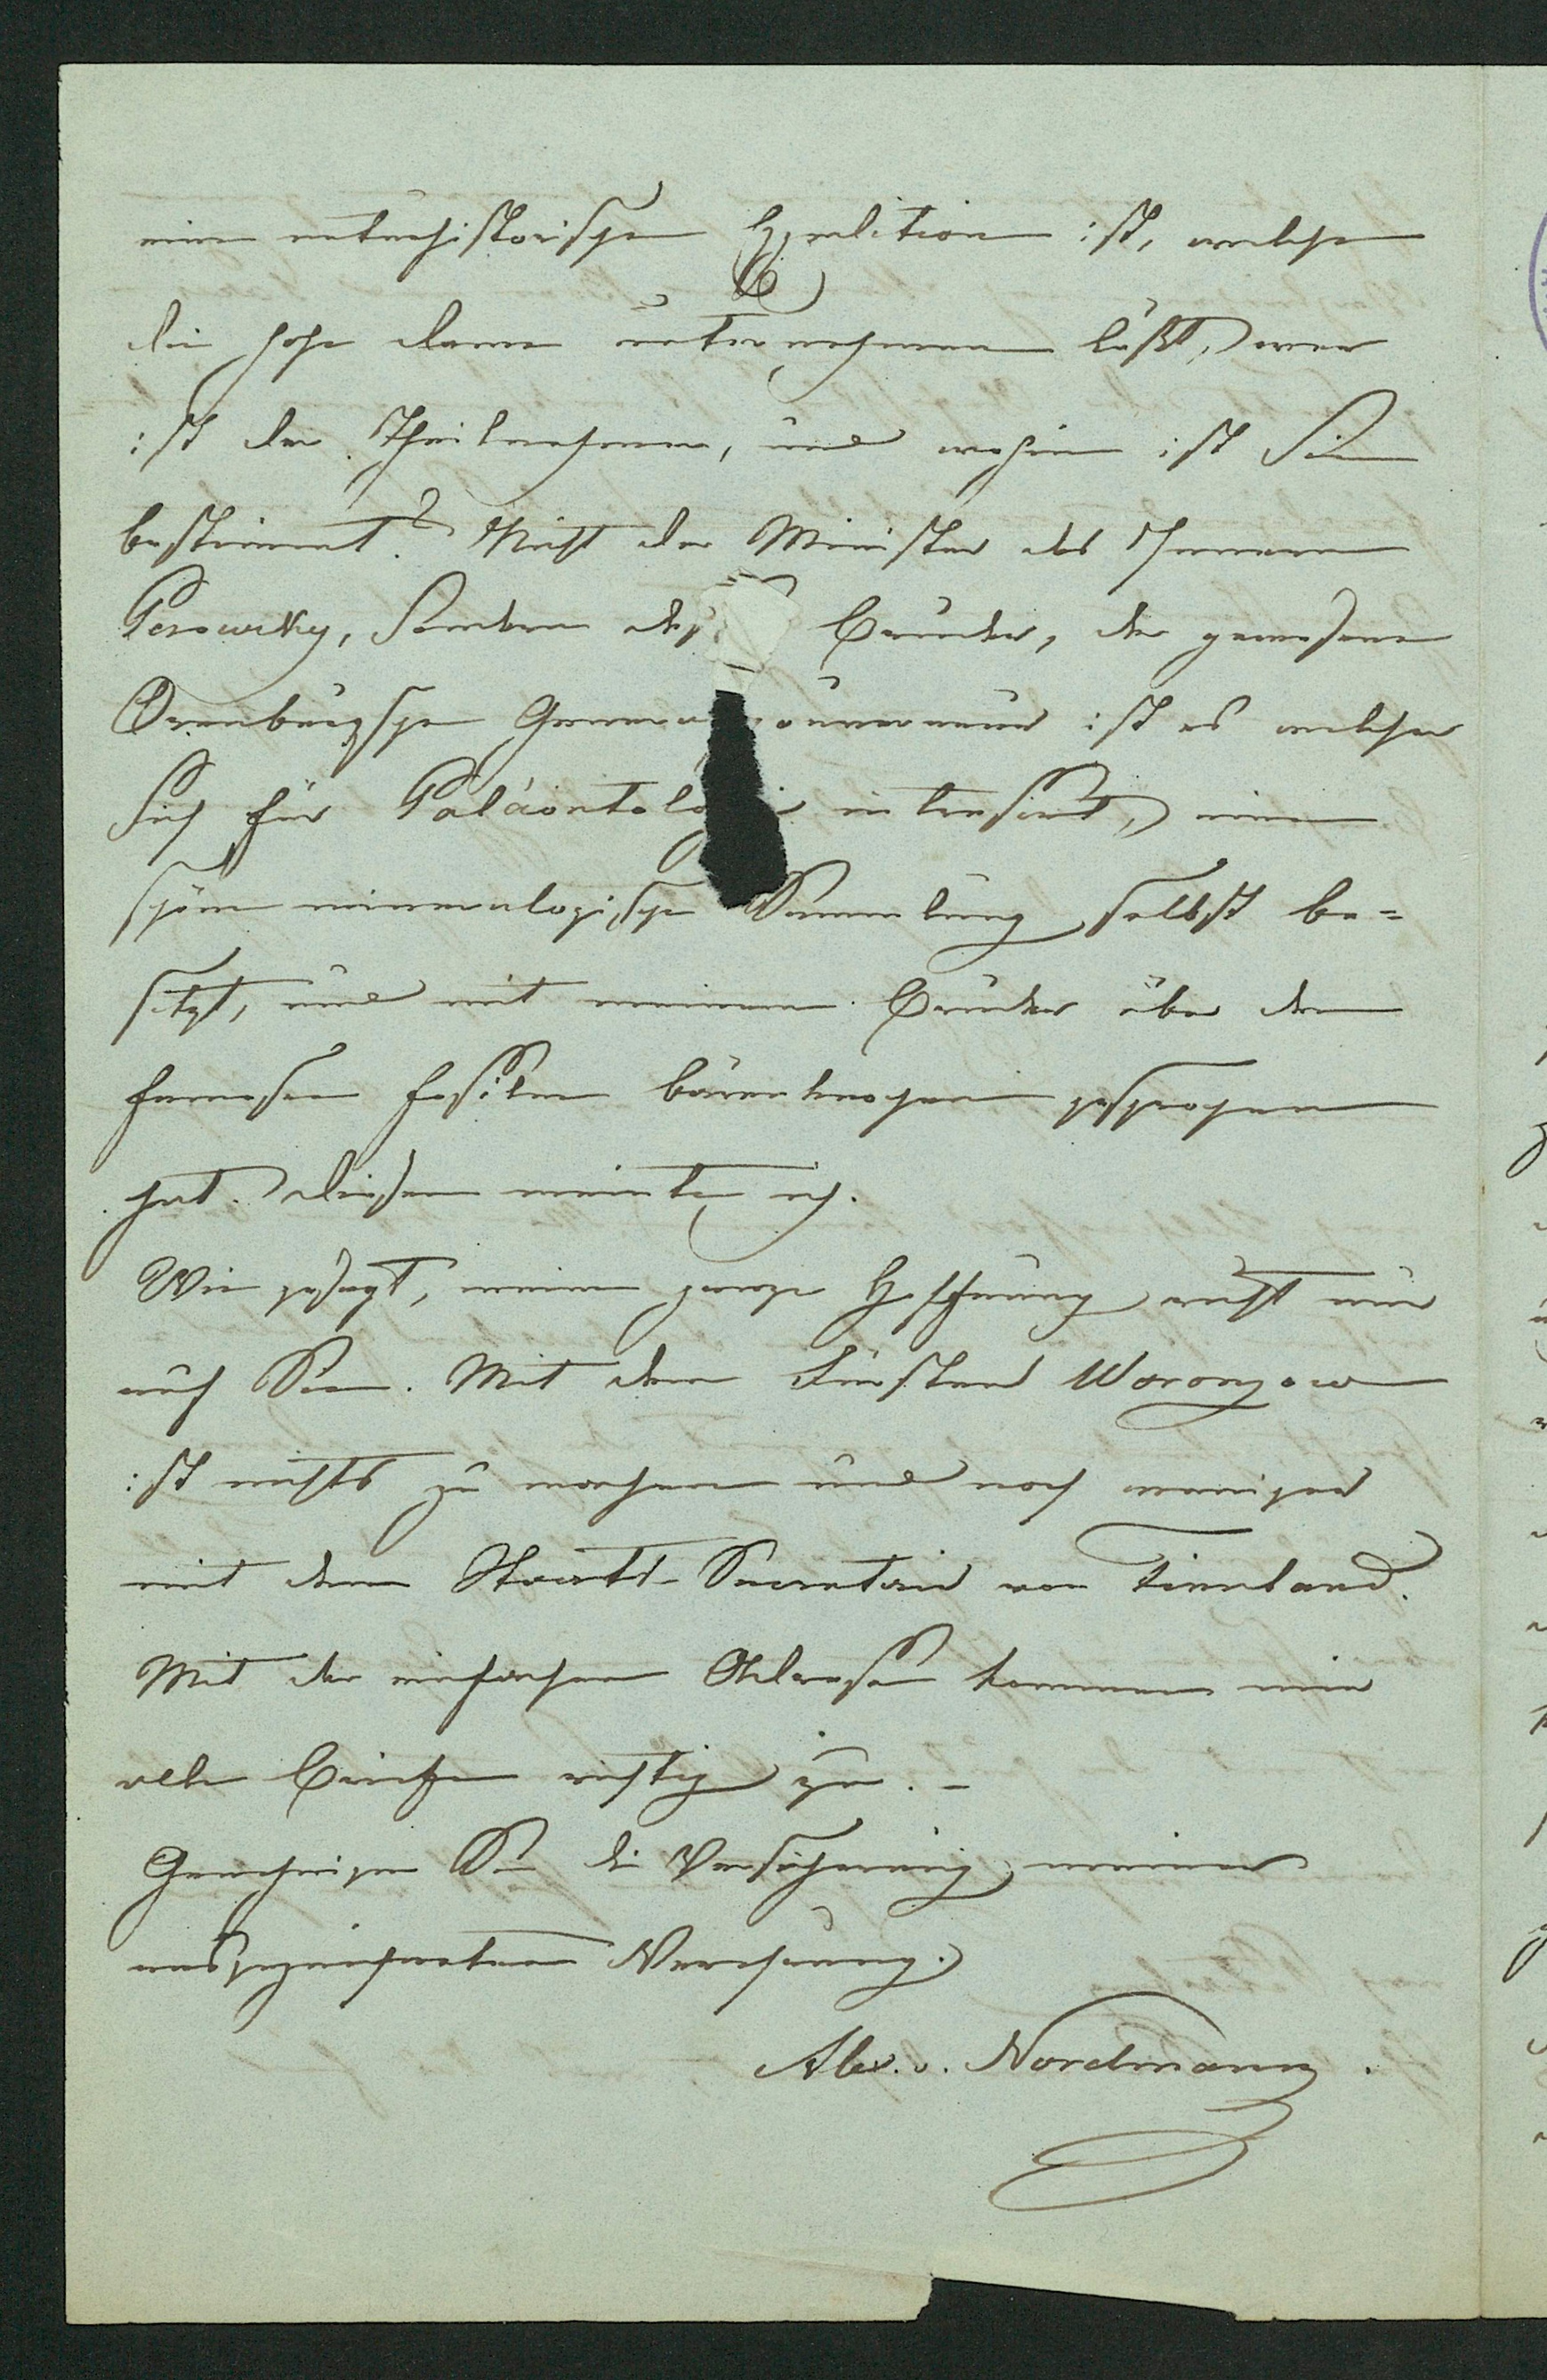 eine naturhistorische Expedition ist, welche
die hohe Dame unternehmen läßt, wer
ist der Theilnehmer, und wohin ist Sie
bestimmt? Nicht der Minister des Inneren
Perowsky, sondern des Bruder, der gewesene
Orenburgsche General ouverneur ist es welcher
sich für Paläontolo i interesirt, eine
schöne mineralogische Sammlung selbst be=
sitzt, und mit meinem Bruder über den
famosen fosilen bärenknochen gesprochen
hat. Diesen meinte ich.
Wie gesagt, meine ganze Hoffnung ruht nur
auf Sie. Mit dem Fürsten Woronzow
ist nichts zu machen und noch weniger
mit dem Staats-Secretair von Finnland.
Mit der einfachen Adresse kommen mir
alle Briefe richtig zu. –
Genehmigen Sie die Versicherung meiner
ausgezeichneten Verehrung.
Alex. v. Nordmann.